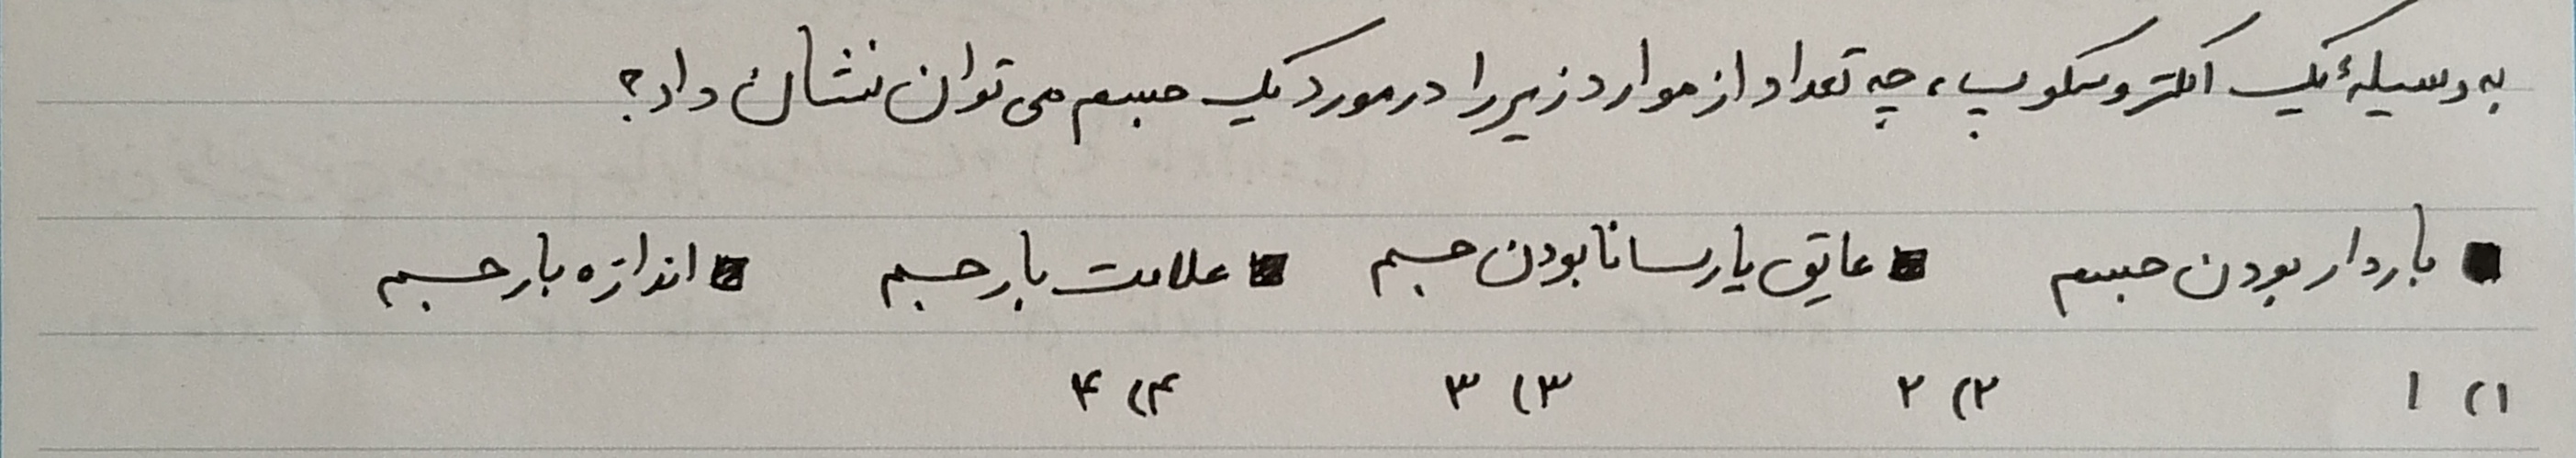 به وسیلهٔ یک الکتروسکوپ، چه تعداد از موارد زیر را در مورد یک جسم می توان نشان داد؟
■ باردار بودن جسم ■ عایق یا رسانا بودن جسم ■ علامت بار جسم ■ اندازه بار جسم
۱) ۱ ۲) ۲ ۳) ۳ ۴) ۴